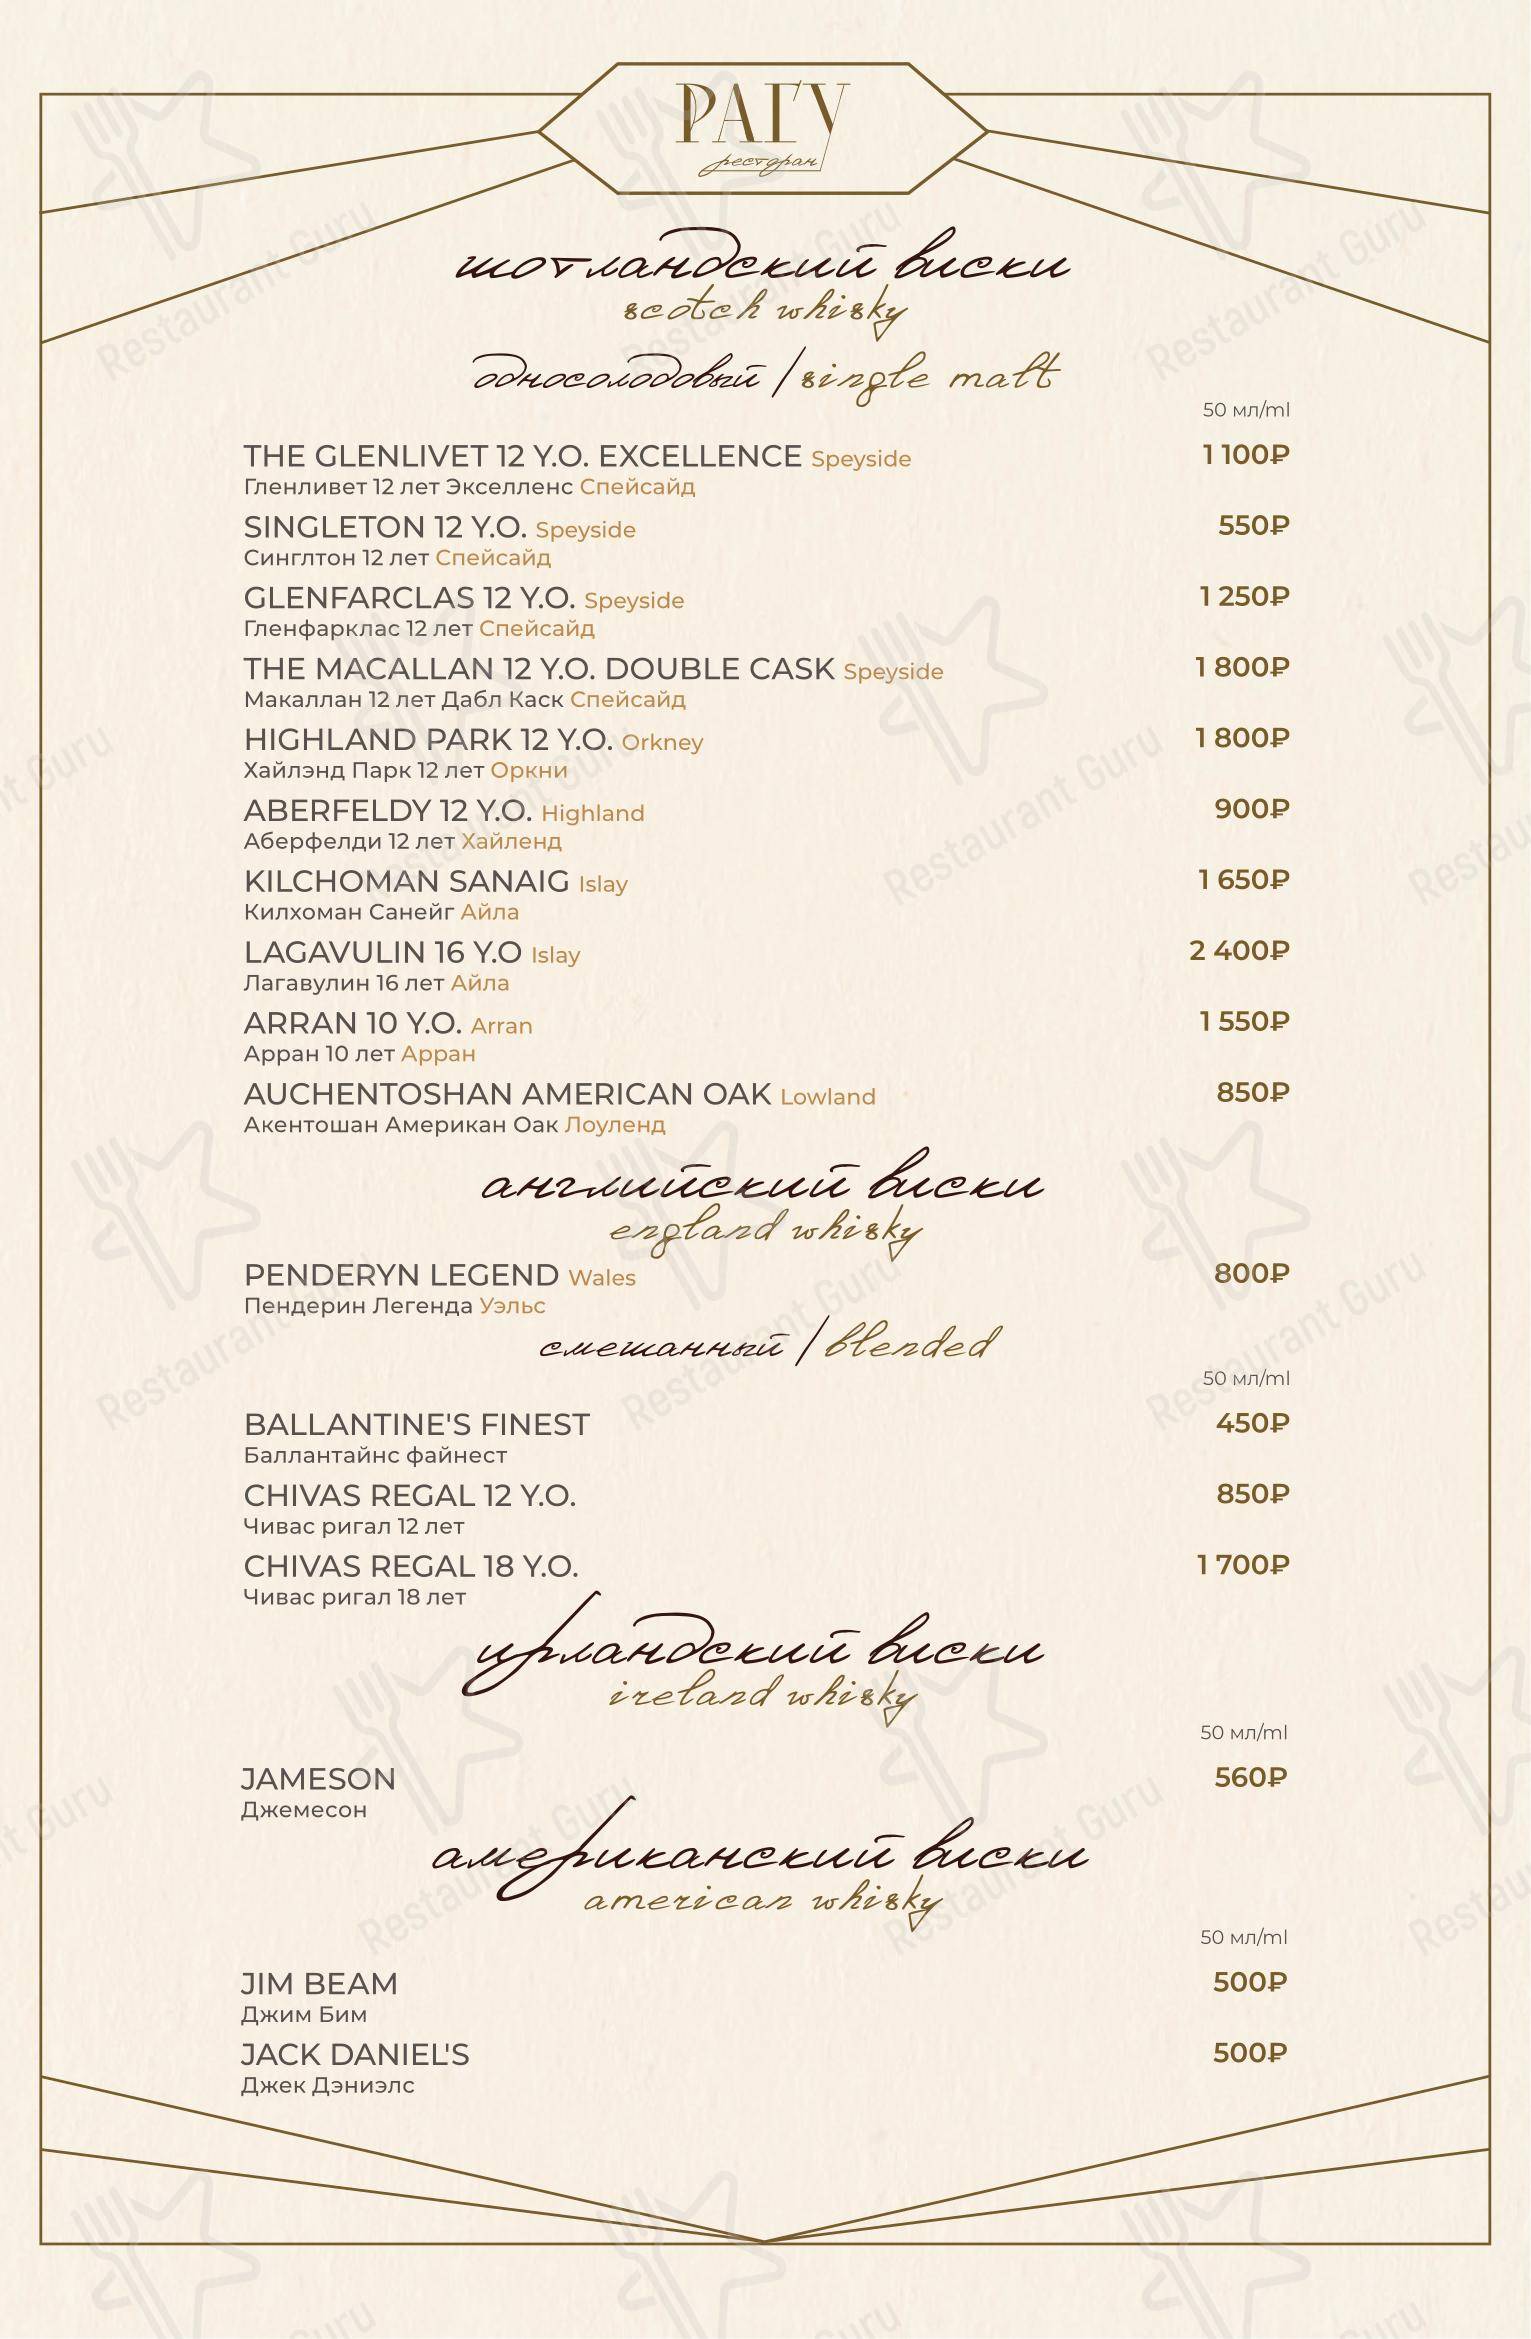 РАГУ
ресторан
шотландский виски
scotch whisky
односолодовый / single malt
50 мл/ml
THE GLENLIVET 12 Y.O. EXCELLENCE Speyside 1 100₽
Гленливет 12 лет Экселленс Спейсайд
SINGLETON 12 Y.O. Speyside 550₽
Синглтон 12 лет Спейсайд
GLENFARCLAS 12 Y.O. Speyside 1 250₽
Гленфарклас 12 лет Спейсайд
THE MACALLAN 12 Y.O. DOUBLE CASK Speyside 1 800₽
Макаллан 12 лет Дабл Каск Спейсайд
HIGHLAND PARK 12 Y.O. Orkney 1 800₽
Хайлэнд Парк 12 лет Оркни
ABERFELDY 12 Y.O. Highland 900₽
Аберфелди 12 лет Хайленд
KILCHOMAN SANAIG Islay 1 650₽
Килхоман Санейг Айла
LAGAVULIN 16 Y.O Islay 2 400₽
Лагавулин 16 лет Айла
ARRAN 10 Y.O. Arran 1 550₽
Арран 10 лет Арран
AUCHENTOSHAN AMERICAN OAK Lowland 850₽
Акентошан Американ Оак Лоуленд
английский виски
england whisky
PENDERYN LEGEND Wales 800₽
Пендерин Легенда Уэльс
смешанный / blended
50 мл/ml
BALLANTINE'S FINEST 450₽
Баллантайнс файнест
CHIVAS REGAL 12 Y.O. 850₽
Чивас ригал 12 лет
CHIVAS REGAL 18 Y.O. 1 700₽
Чивас ригал 18 лет
ирландский виски
ireland whisky
50 мл/ml
JAMESON 560₽
Джемесон
американский виски
american whisky
50 мл/ml
JIM BEAM 500₽
Джим Бим
JACK DANIEL'S 500₽
Джек Дэниэлс
Restaurant Guru